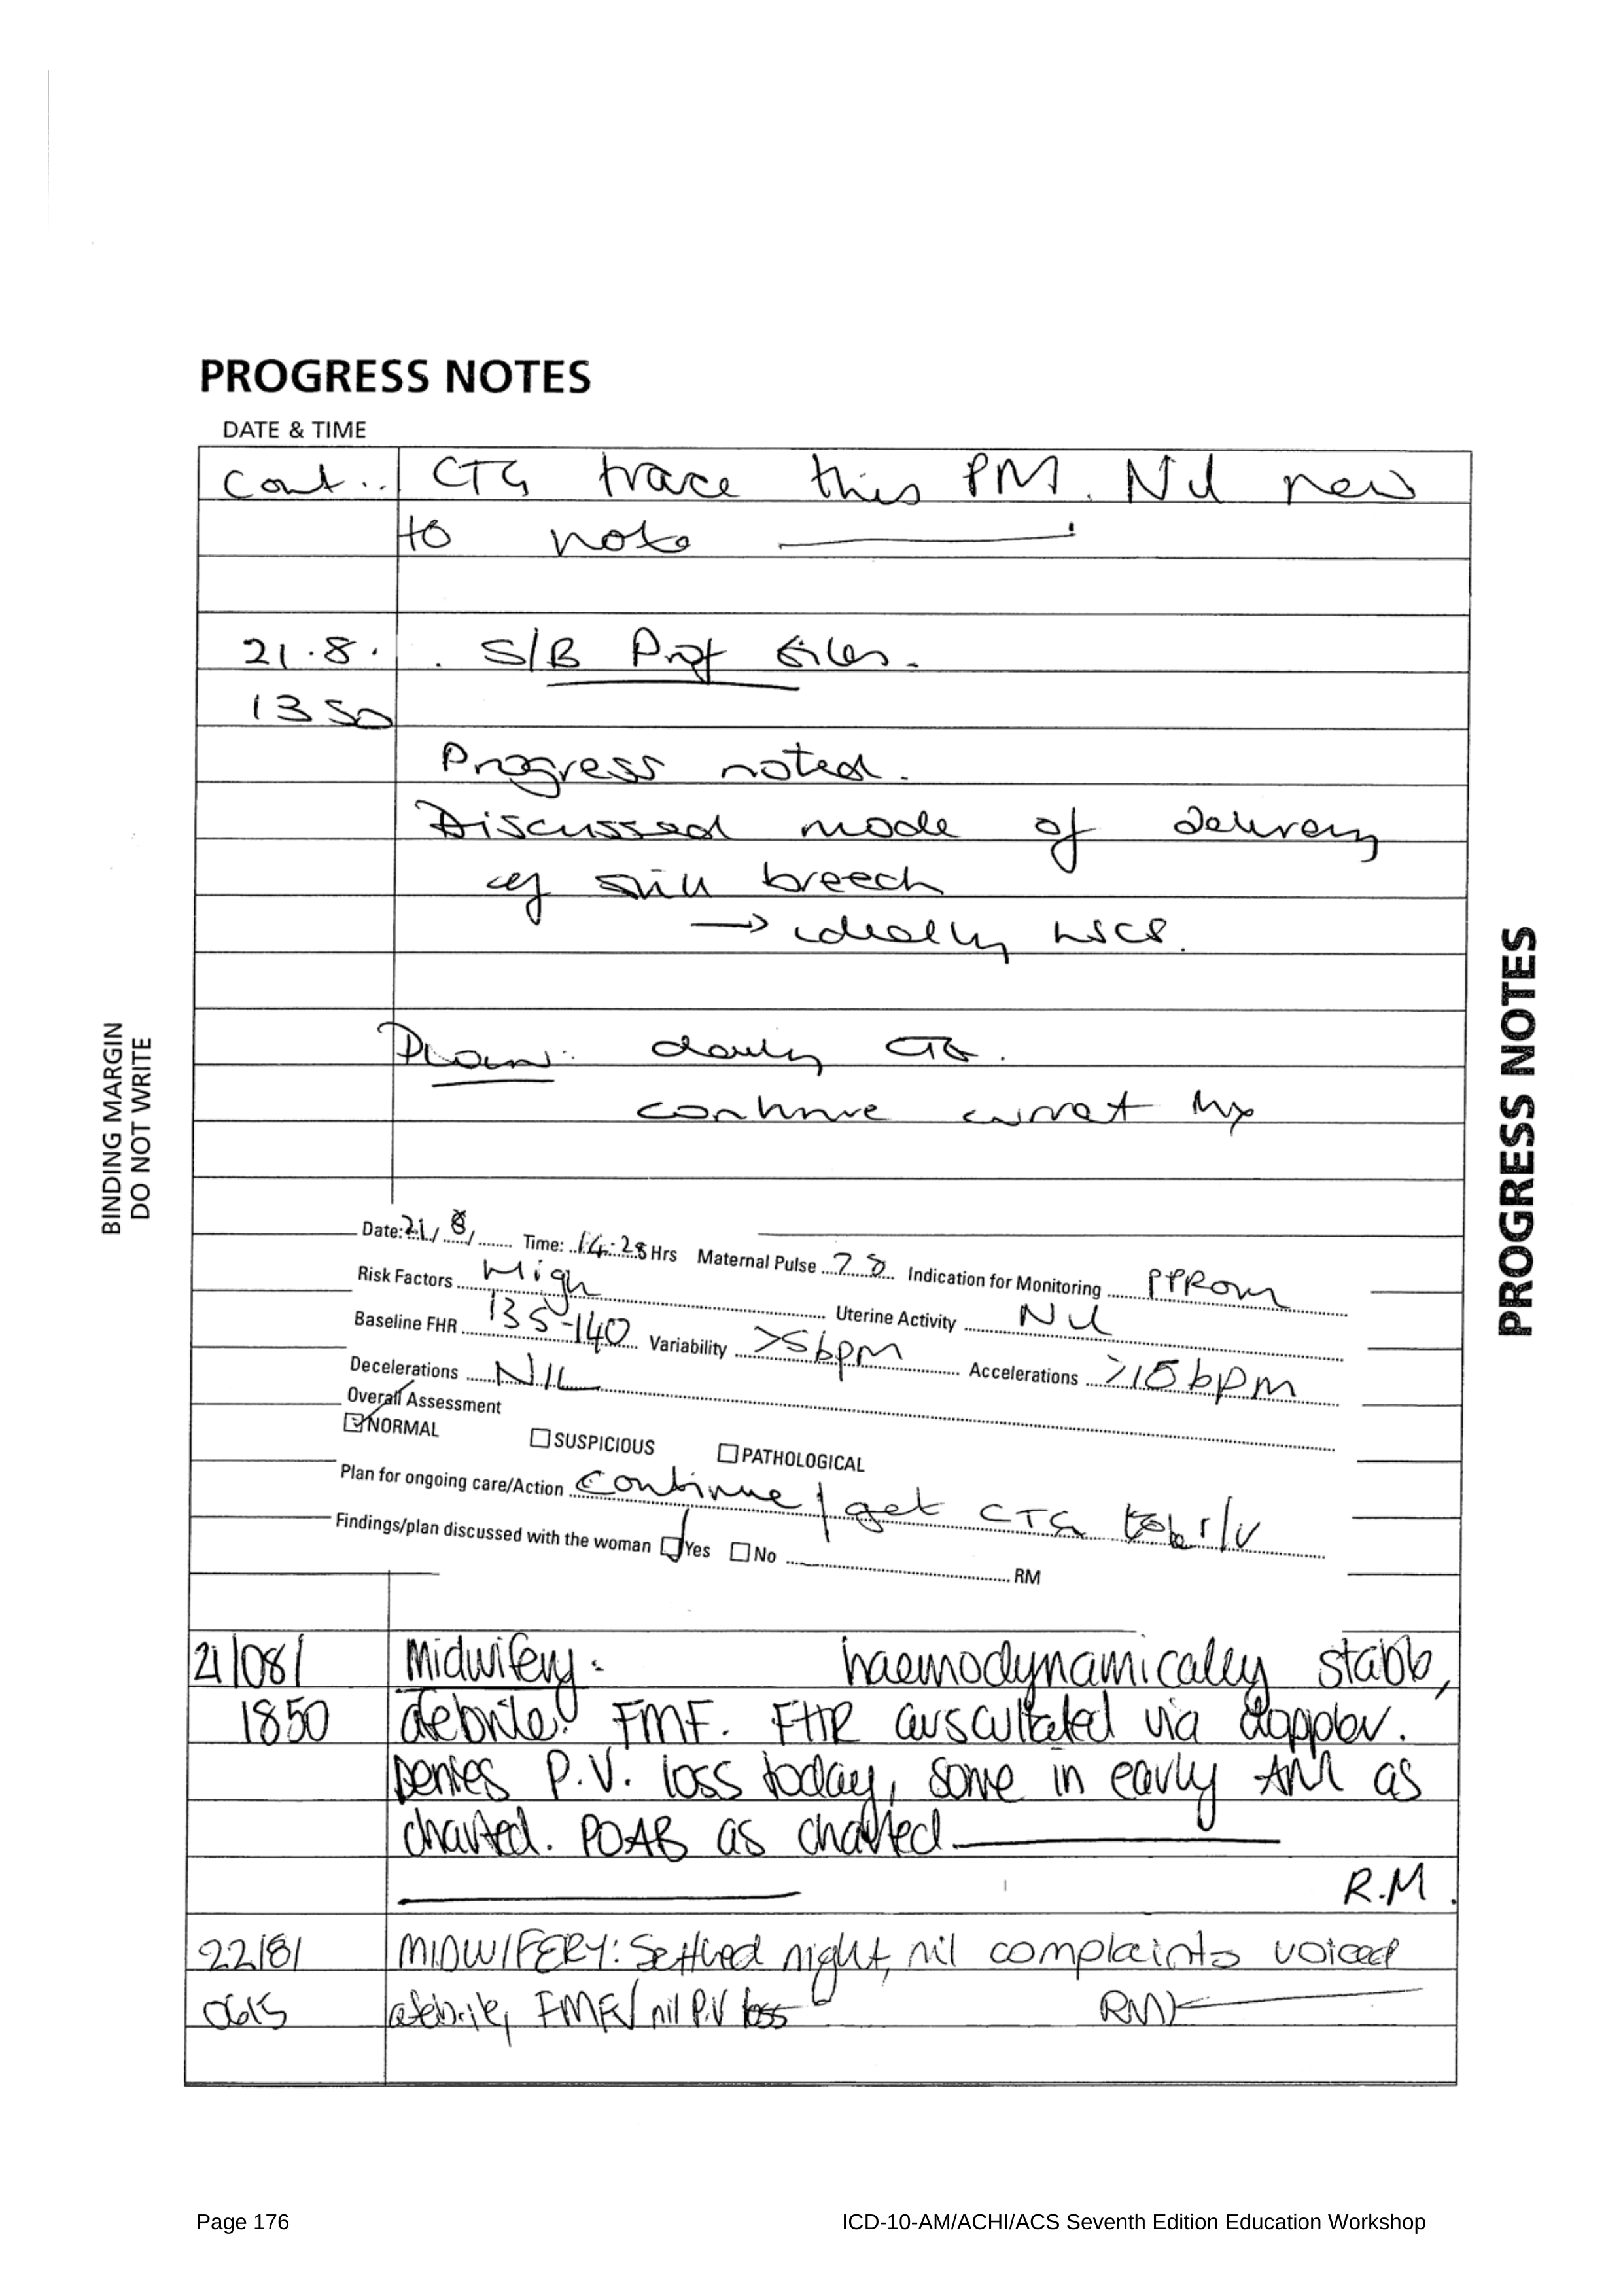 PROGRESS NOTES
DATE & TIME
Cont.. CTG trace this PM. Nil new
to note
21.8. S/B Prof Giles.
1350
Progress noted.
Discussed mode of delivery
if still breech
→ ideally LSCS.
Plan: daily CTG.
continue current Mx
Date: 21/8/ Time: 14:28 Hrs Maternal Pulse 78 Indication for Monitoring PPROM
Risk Factors High Uterine Activity Nil
Baseline FHR 135-140 Variability >5bpm Accelerations >15bpm
Decelerations NIL
Overall Assessment
NORMAL SUSPICIOUS PATHOLOGICAL
Plan for ongoing care/Action Continue / get CTG to be r/v
Findings/plan discussed with the woman Yes No RM
21/08/ Midwifery: haemodynamically stable,
1850 afebrile. FMF. FHR auscultated via doppler.
Denies P.V. loss today, some in early AM as
charted. POAB as charted
R.M.
22/8/ MIDWIFERY: Settled night, nil complaints voiced
0615 afebrile, FMF/ nil P.V loss RM
BINDING MARGIN
DO NOT WRITE
PROGRESS NOTES
Page 176 ICD-10-AM/ACHI/ACS Seventh Edition Education Workshop